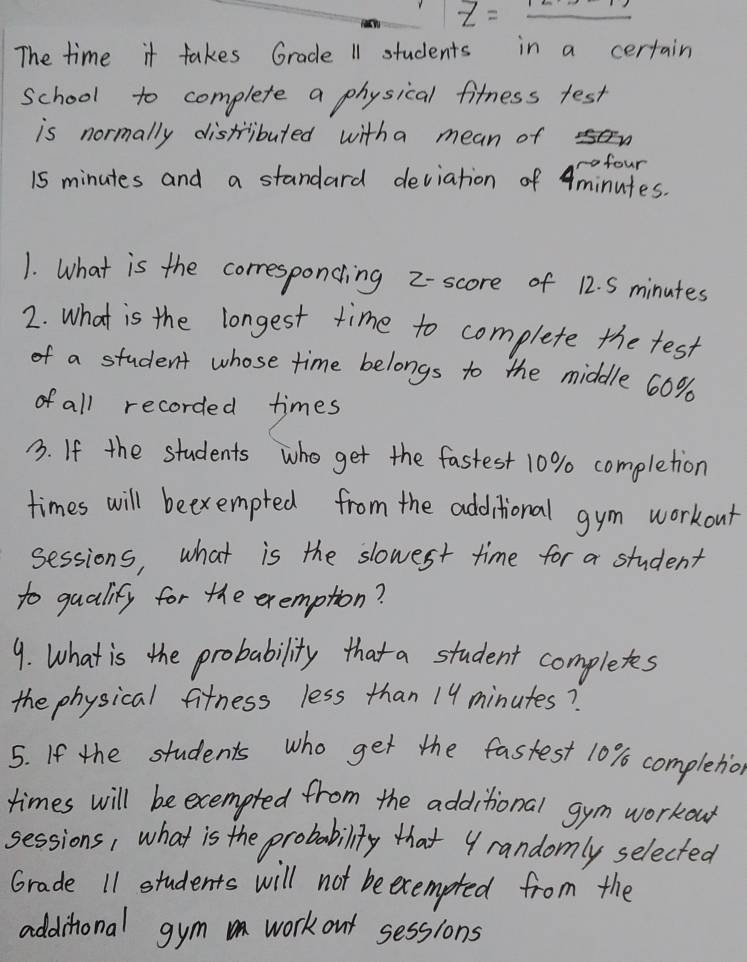 Z =
The time it takes Grade 11 students in a certain
School to complete a physical fitness test
is normally distributed with a mean of
four
15 minutes and a standard deviation of 4minutes.
1. What is the corresponding z-score of 12.5 minutes
2. What is the longest time to complete the test
of a student whose time belongs to the middle 60%
of all recorded times
3. If the students who get the fastest 10% completion
times will beexempted from the additional gym workout
sessions, what is the slowest time for a student
to qualify for the exemption?
4. What is the probability that a student completes
the physical fitness less than 14 minutes?
5. If the students who get the fastest 10% completion
times will be exempted from the additional gym workout
sessions, what is the probability that 4 randomly selected
Grade 11 students will not be exempted from the
additional gym workout sessions